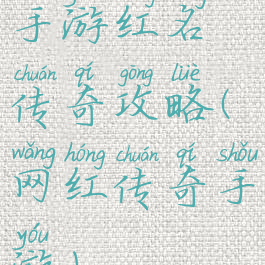 手游红名
chuán qí gōng lüè
传奇攻略(
wǎng hóng chuán qí shǒu
网红传奇手
yóu
游)